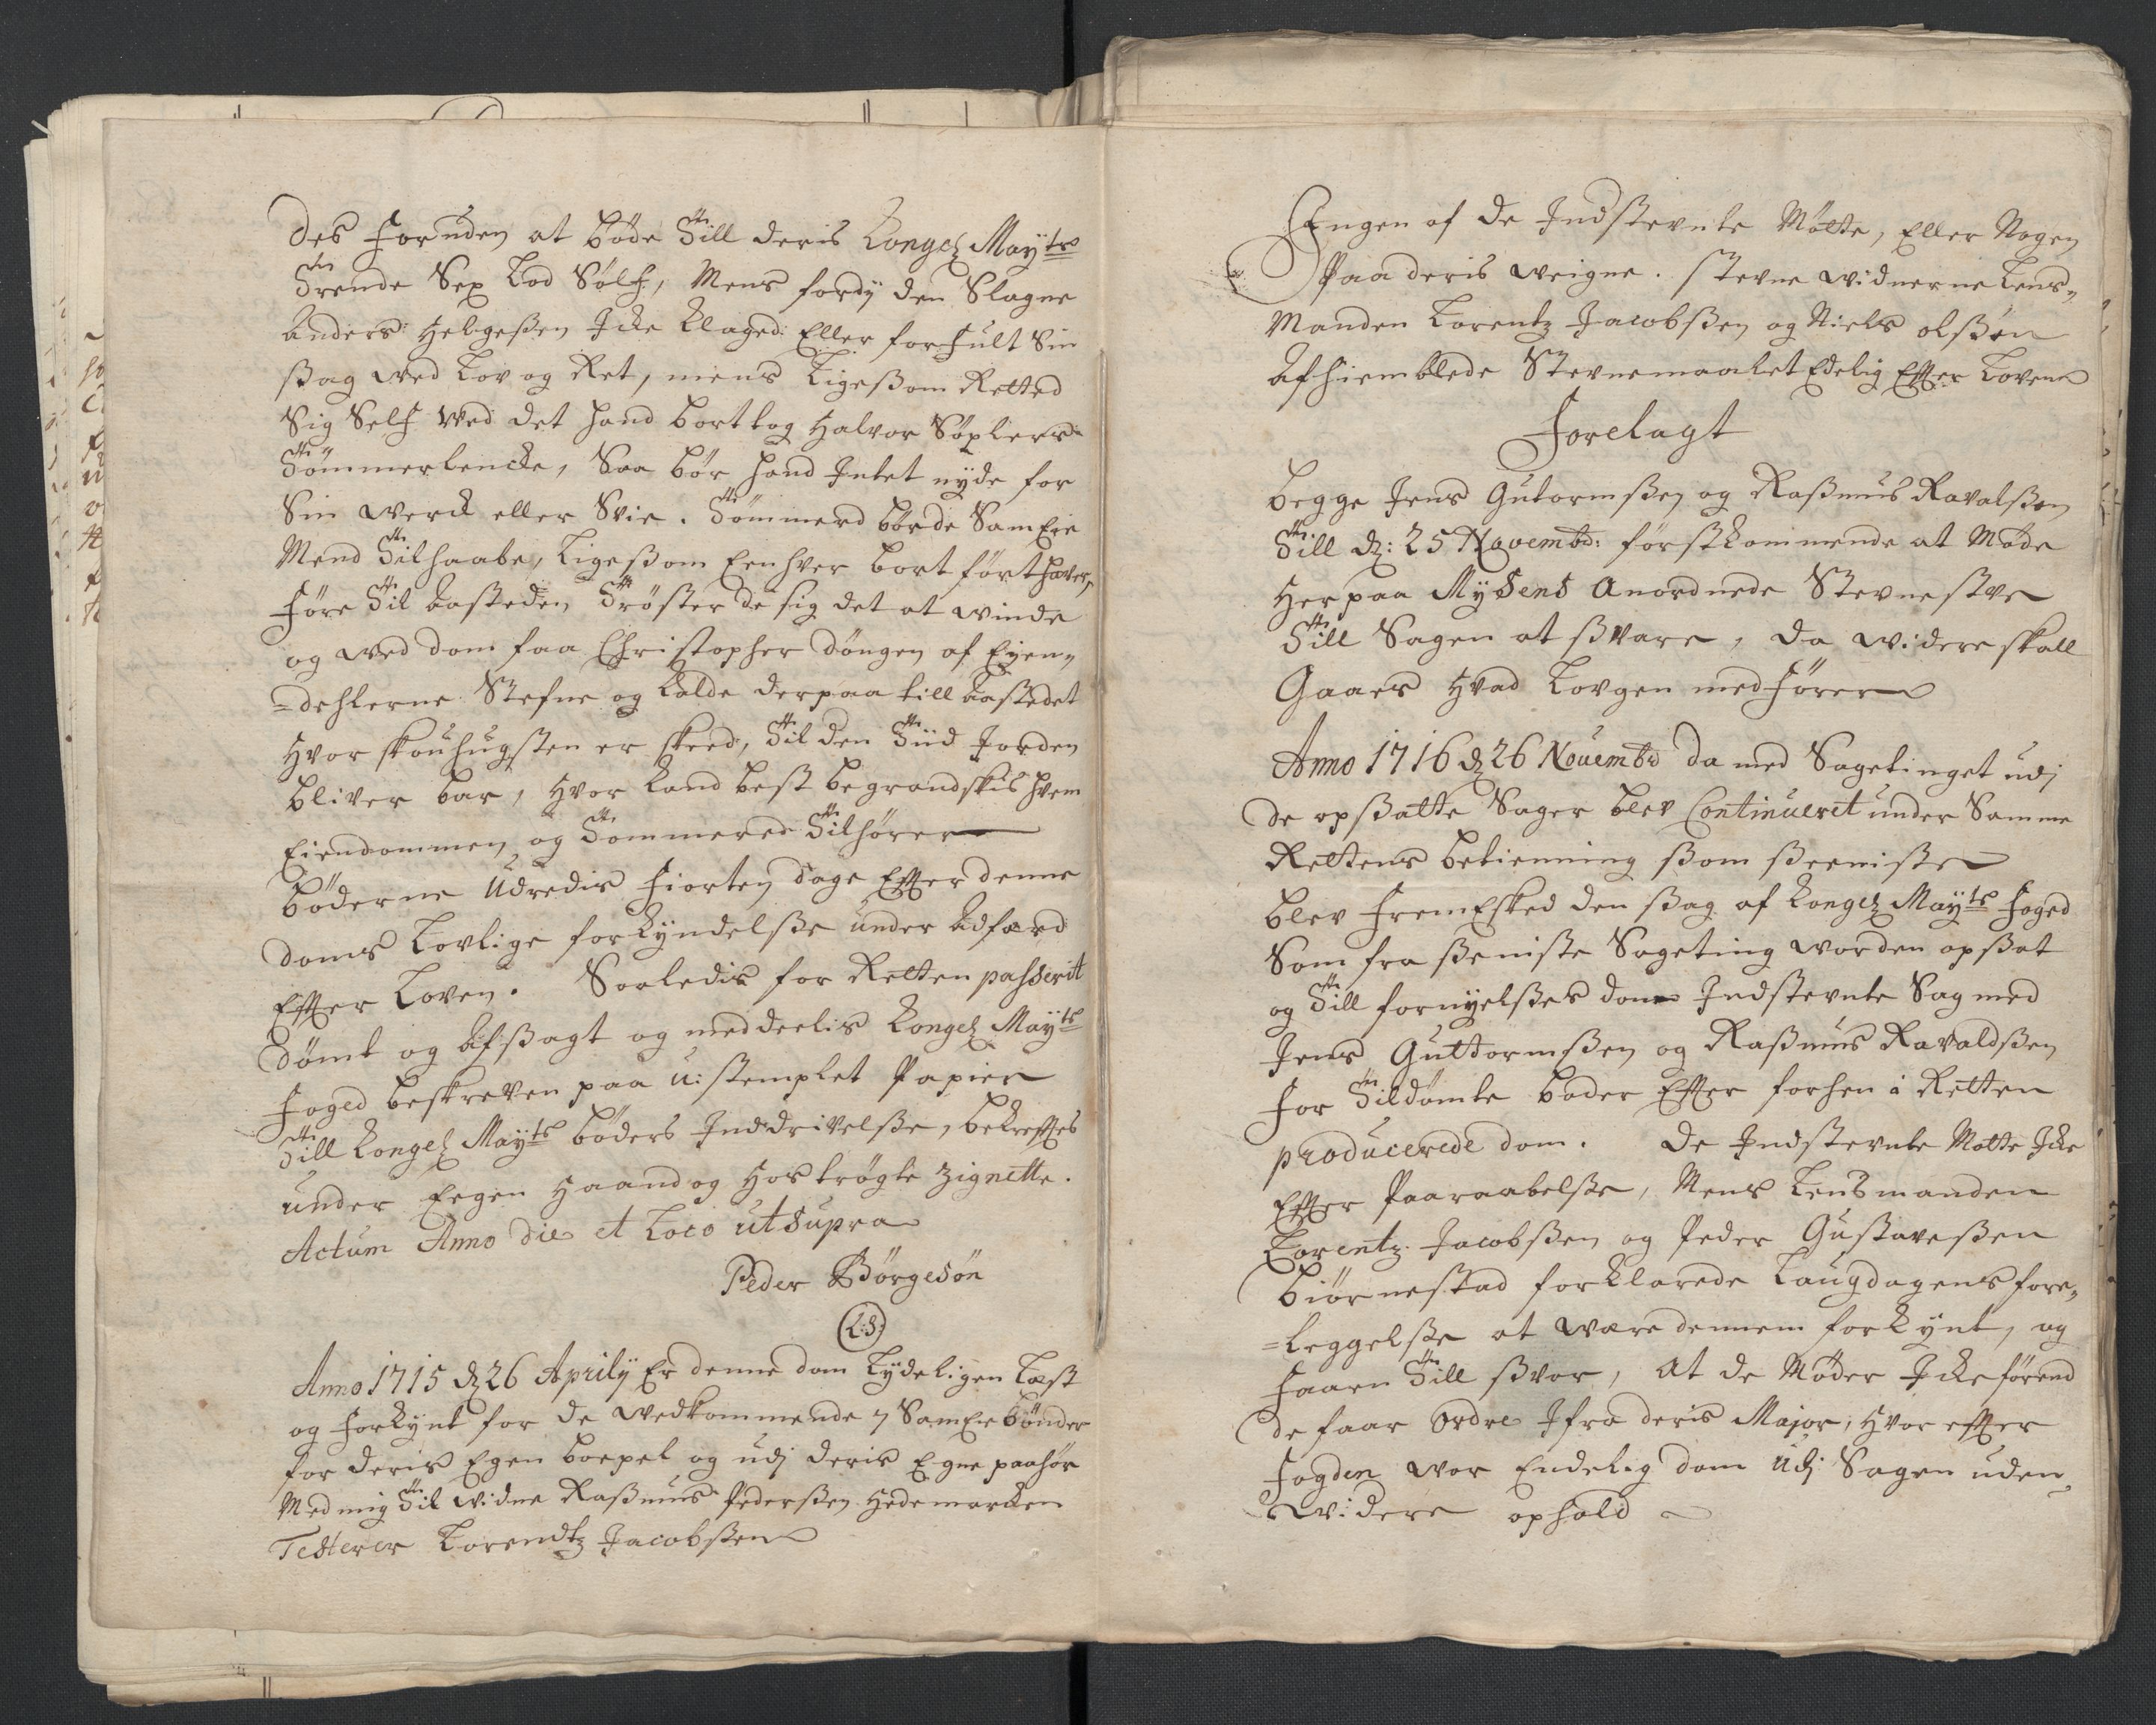 des foruden at bøde Till deris Kongel Maytz
Trende Sex Lod Sølf, Mens fordj den Slagne
Anders Helgeßen Icke Klaged Eller forfult Sin
ßag ved Lov og Ret, mens Ligeßom Retted
Sig Self Ved det hand borttog Halvor Søxlers
Tømmerlencke, Saa bør hand Intet nyde for
Sin Verck eller Svie. Tømmered børde SamEie
Mend Tilhaabe, Ligeßom Eenhver bort ført haver,
føre Til aasteden Trøster de sig det at vinde
og ved dom faa Christopher Døngen af Eyen„
=dehlerne Stefne og Kalde derpaa till aastedet
Hvor skouhugsten er skeed, Til den Tiid Jorden
bliver bar, Hvor Kand best begrandskis hvem
Eiendommen og Tommeret Tilhører
bøderne Udredis fiorten dage Efter denne
doms Lovlige forkyndelße under Adfærd
Efter Loven. Saaledis for Retten passerit
dømt og Afßagt og meddeelis Kongel Mayts
foged beskreven paa u:stemplet Papier
Till Kongel Mayts bøders Inddrivelße, bekreftes
under Eegen Haand og Hostrøgte Zignette.
Actum Anno die et Loco utsupra
Peder Børgesøn
L:S:
Anno 1715 d 26 Aprily Er denne dom Lydeligen Læst
og forkynt for de vedkommende 7 SamEie bønder
for deris Egen boepel og udj deris Egne paahør
Med mig Til Vidne Raßmus Pederßen Hedemarken
Testerer Lorendtz Jacobßen
Ingen af de Indstevnte Møtte, Eller Nogen
Paa deris veigne. Stevne vidnerne Lens„
Manden Lorentz Jacobßen og Niels olßøn
Afhiemblede Stevnemaalet Edelig Efter Loven
Forelagt
begge Jens Gutormßen og Raßmus Ravalßen
Till d: 25 Novembr: førstkommende at Møde
Her paa Mysens Anordnede Stevnestue
Till Sagen at ßvare, da videre skall
Gaaes Hvad Lovgen medfører
Anno 1716 d 26 Novembr da med Sagetinget udj
de opßatte Sager blev Continueret under Samme
Rettens betienning ßom ßeeniste
blev fremEsked den ßag af Kongel Mayts foged
Som fra ßeniste Sageting vorden opßat
og Till fornyelßes dom Indstevnte Sag med
Jens Guttormßen og Raßmus Ravaldßen
for Tildømte bøder Efter forhen i Retten
producerede dom. De Indstevnte Møtte Icke
Efter Paaraabelße, Mens Lensmanden
Lorentz Jacobßen og Peder Gustaveßen
biørnestad forklarede Laugdagens fore„
=leggelße at være dennem forkynt, og
faaen Till ßvar, At de Møder Icke førend
de faar ordre Ifra deris Major, Hvor efter
fogden var Endelig dom Udj Sagen uden
videre ophold